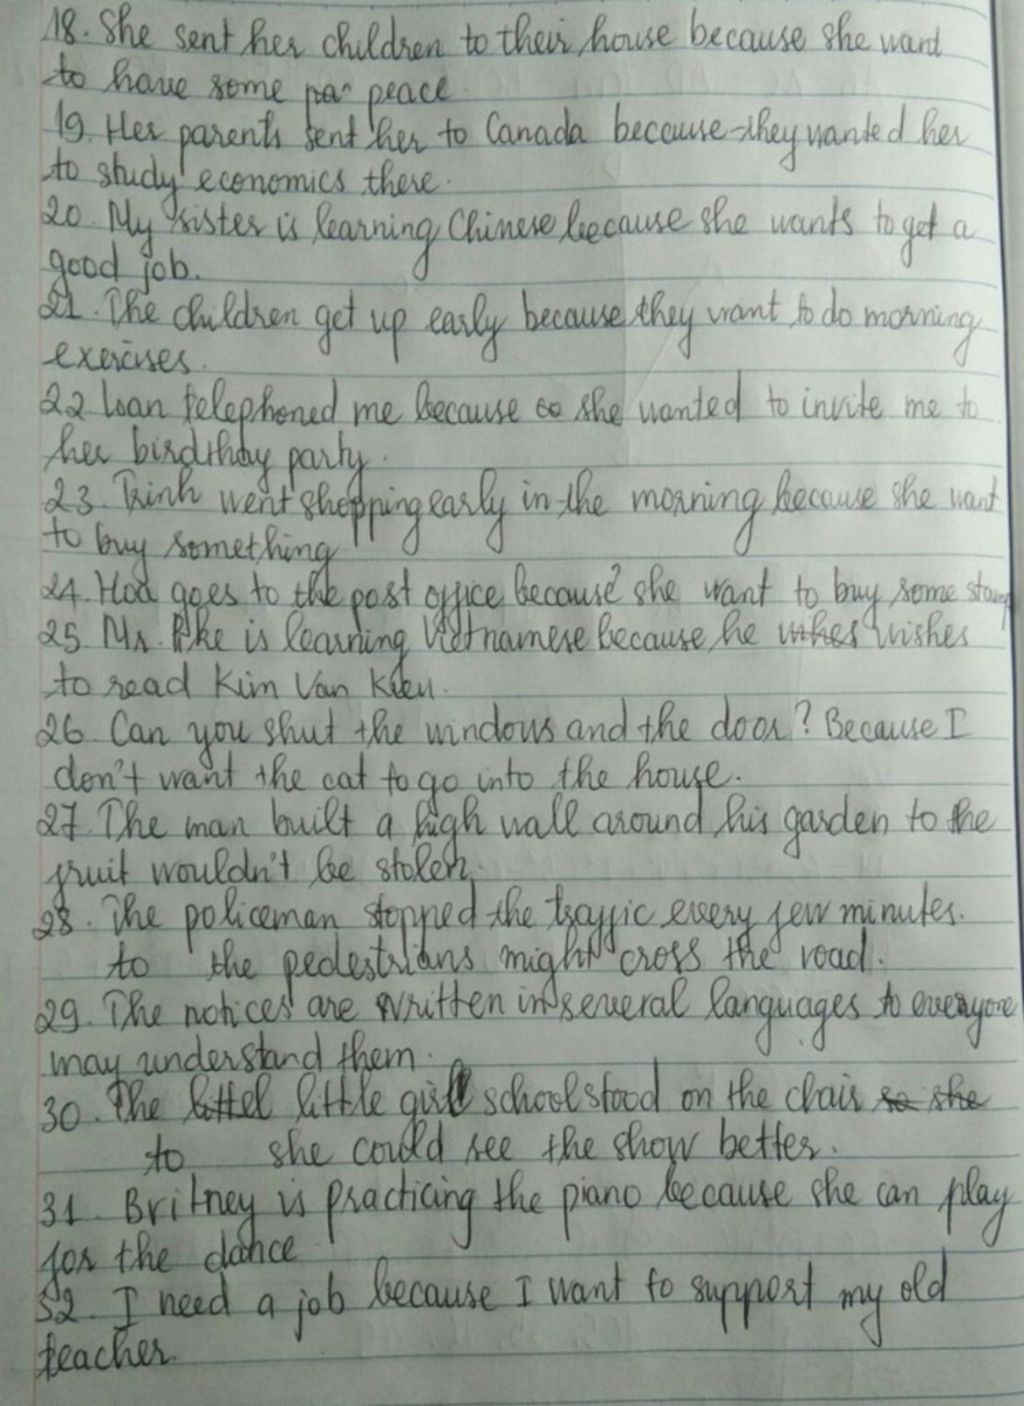 18. She sent her children to their house because she want
to have some pa peace
19. Her parents sent her to Canada because they wanted her
to study economics there.
20. My sister is learning Chinese because she wants to get a
good job.
21. The children get up early because they want to do morning
exercises.
22 Loan telephoned me because so she wanted to invite me to
her birdthay party.
23. Trinh went shopping early in the morning because she want
to buy something
24. Hoa goes to the post office because she want to buy some stamp
25. Mr. Pike is learning Vietnamese because he wishes
to read Kim Van Kieu.
26. Can you shut the windows and the door? Because I
don't want the cat to go into the house.
27. The man built a high wall around his garden to the
fruit wouldn't be stolen.
28. The policeman stopped the traffic every few minutes.
to the pedestrians might cross the road.
29. The notices are written in several languages to everyone
may understand them.
30. The littel little girl school stood on the chair so she
to she could see the show better.
31. Britney is practicing the piano because she can play
for the dance
32. I need a job because I want to support my old
teacher.